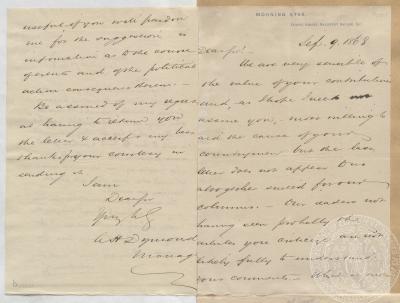 MORNING STAR.
Sep. 9. 1868
Dear Sir/
We are very sensible of
the value of your contributions
and, as I hope I need not
assure you, most willing to
aid the cause of your
countrymen but the
letter does not appear to us
altogether suited for our
columns. — Our readers not
having seen probably the
articles you criticize are not
likely fully to understand
your comments —
useful if you will pardon
me for the suggestion is
information as to the course
of events and of the political
action consequent thereon —
Be assured of my regret
at having to return you
the letter & accept my best
thanks for your courtesy in
sending it
I am
Dear Sir
Yours
A H Dymond
Manager